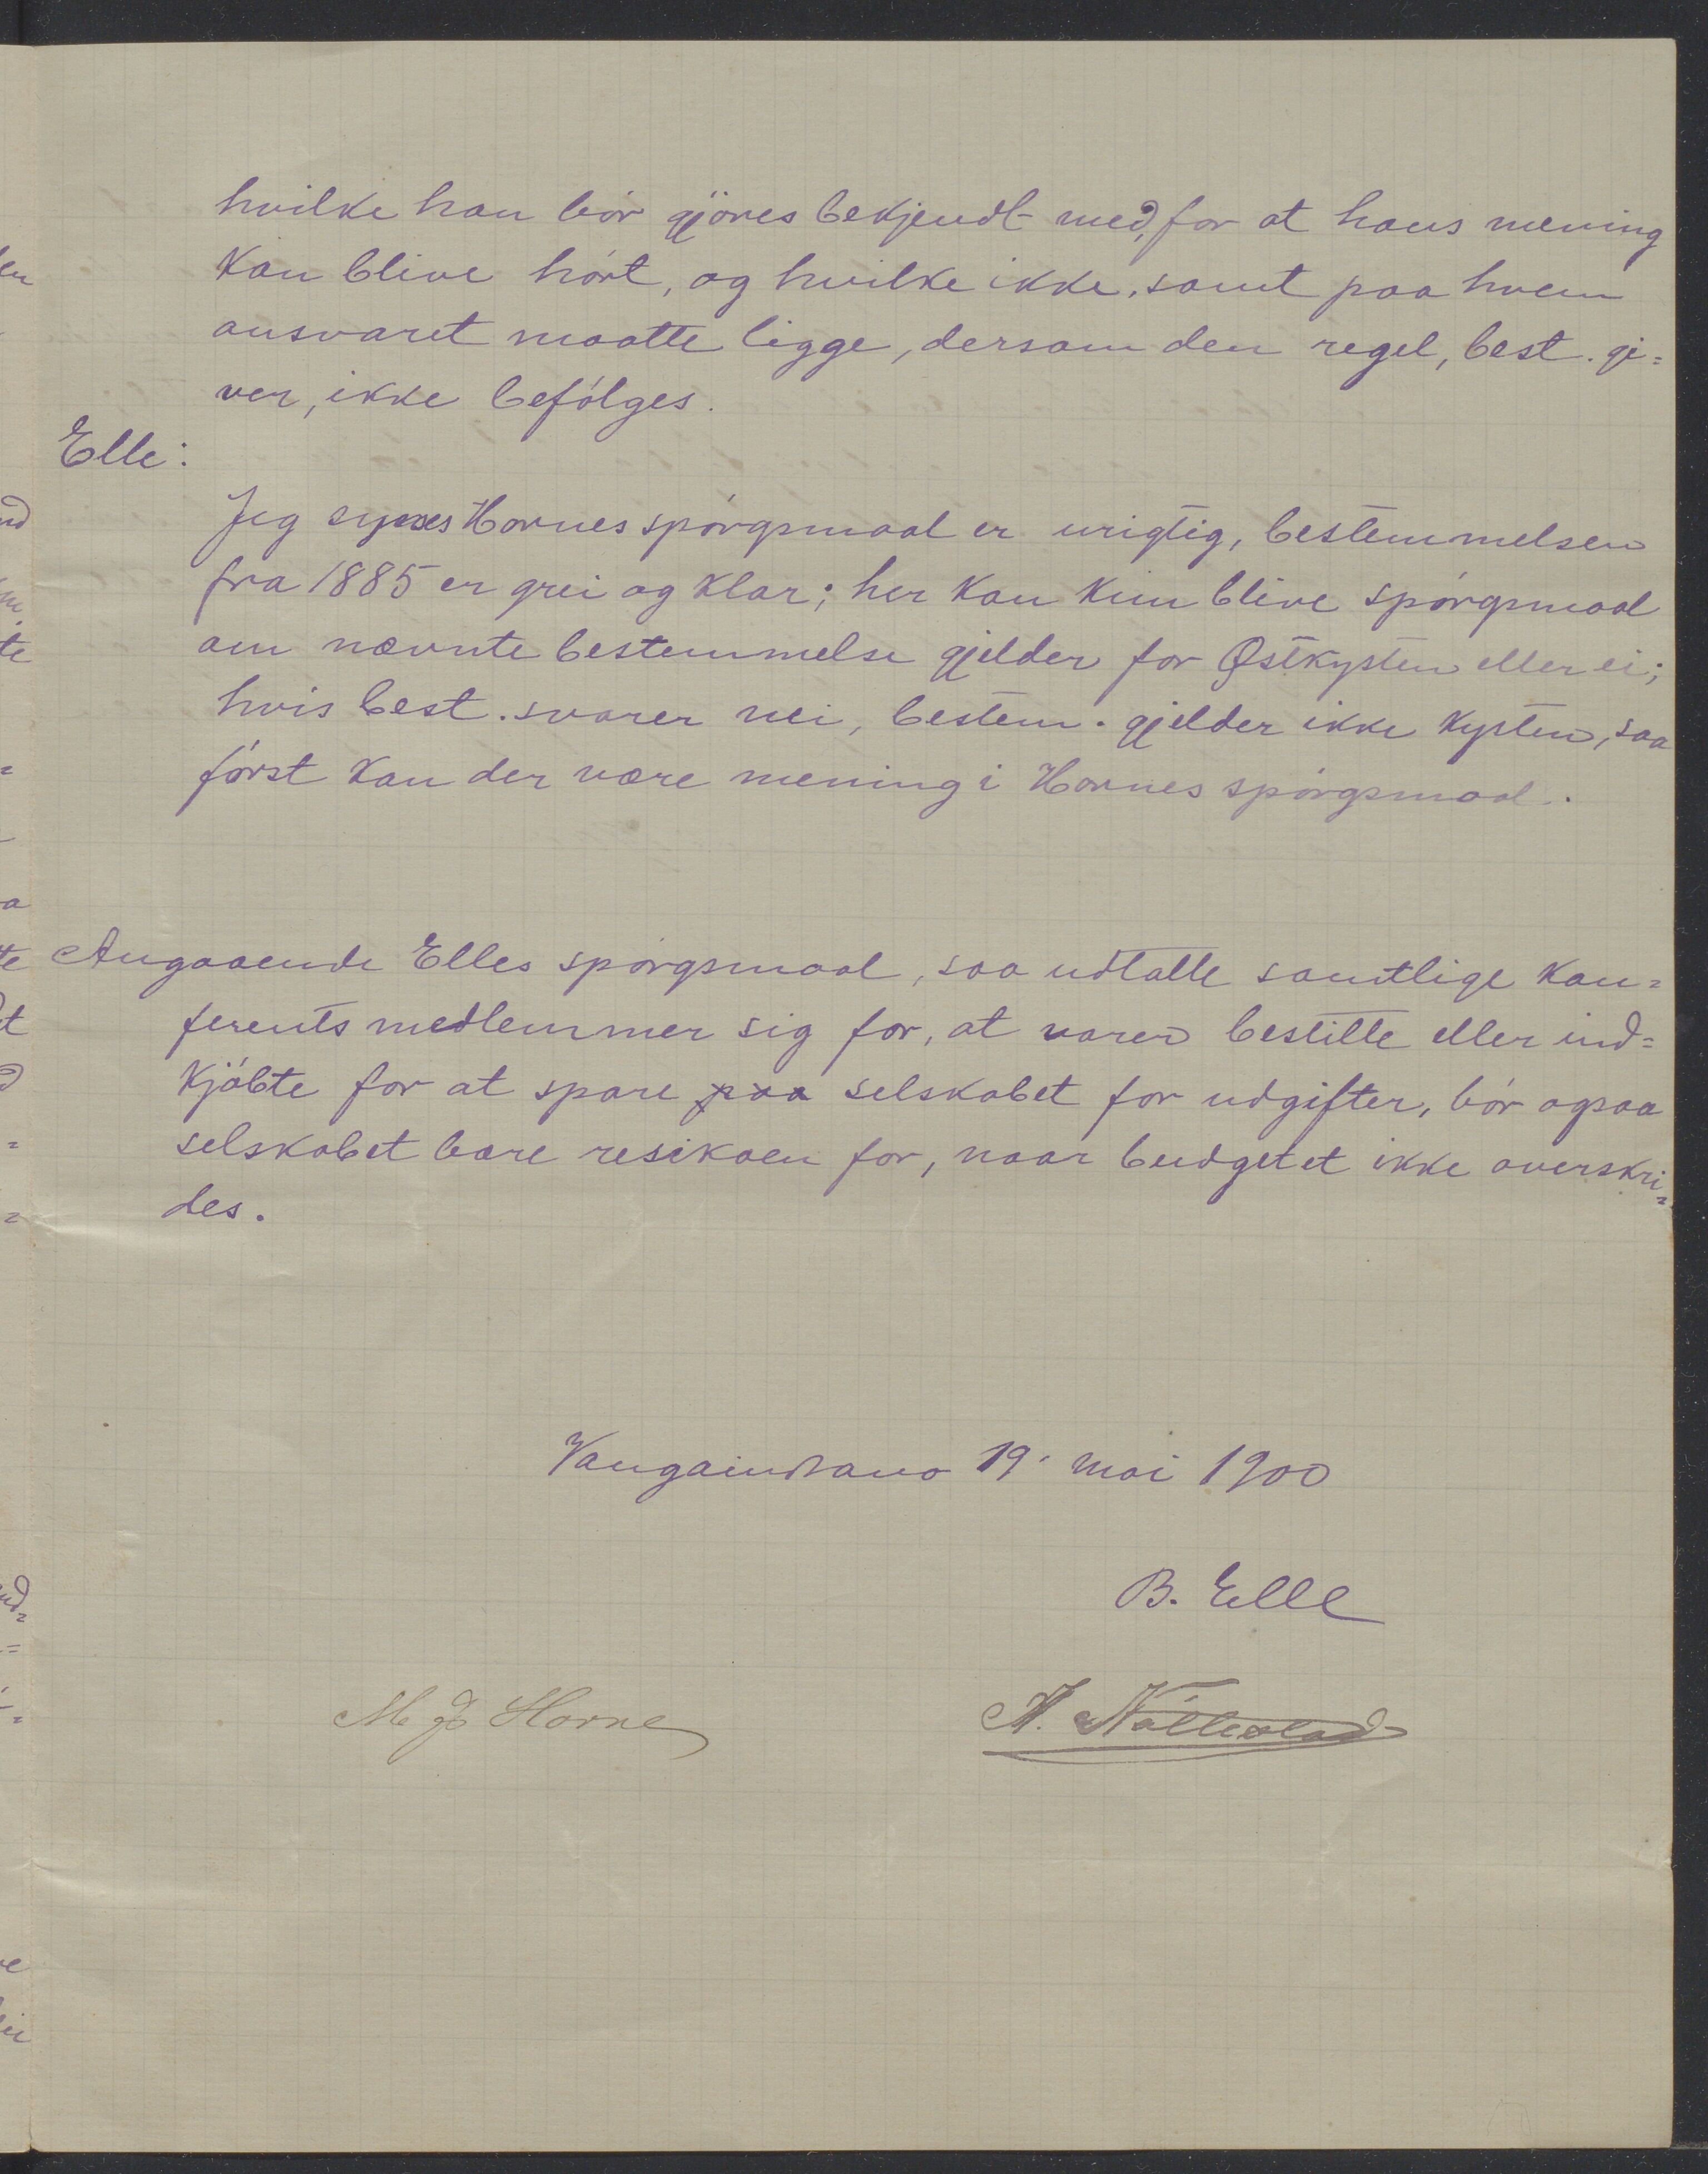 hvilke han bör gjöres bekjendt med, for at hans mening
kan blive hört, og hvilke ikke, samt paa hvem
ansvaret maatte ligge, dersom den regel, best. gi=
ver, ikke befölges.
Elle:
Jeg synes Hornes spörgsmaal er urigtig, bestemmelsen
fra 1885 er grei og klar; her kan kun blive spörgsmaal
om nævnte bestemmelse gjelder for Østkysten eller ei;
hvis best. svarer nei, bestem. gjelder ikke kysten, saa
först kan der være mening i Hornes spörgsmaal.
Angaaende Elles spörgsmaal, saa udtalte samtlige kon=
ferentsmedlemmer sig for, at varer bestilte eller ind=
kjöbte for at spare paa selskabet for udgifter, bör ogsaa
selskabet bære resikoen for, naar budgetet ikke overskri=
des.
Vangaindrano 19. mai 1900
B. Elle
M. J. Horne